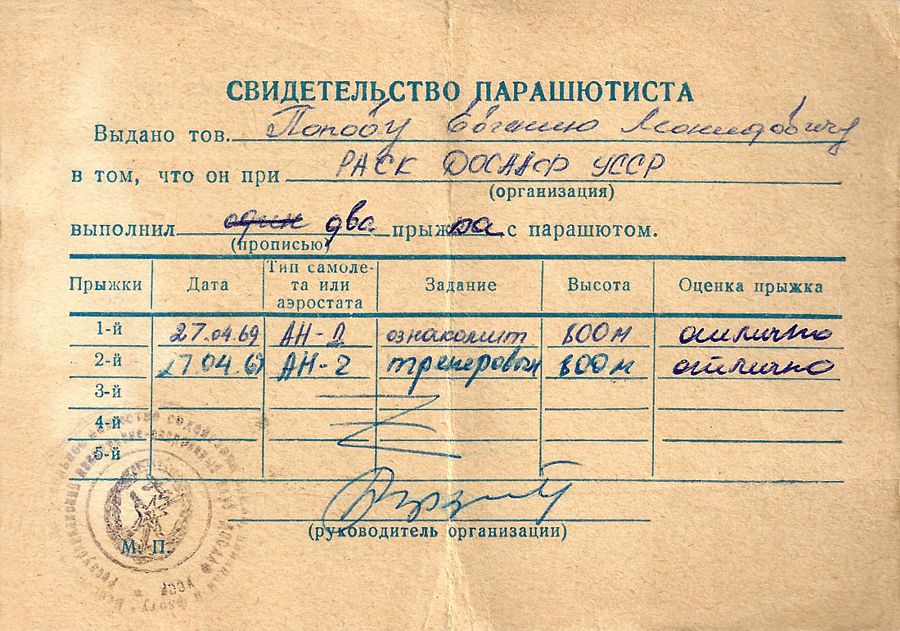 СВИДЕТЕЛЬСТВО ПАРАШЮТИСТА
Выдано тов. Попову Евгению Леонидовичу
в том, что он при РАСК ДОСААФ УССР
(организация)
выполнил один два прыжка с парашютом.
(прописью)
Прыжки Дата Тип самоле-та или аэростата Задание Высота Оценка прыжка
1-й 27.04.69 АН-2 ознакомит 800м отлично
2-й 27 04 69 АН-2 тренеровоч 800м отлично
3-й
4-й
5-й
(руководитель организации)
М. П.
УССР